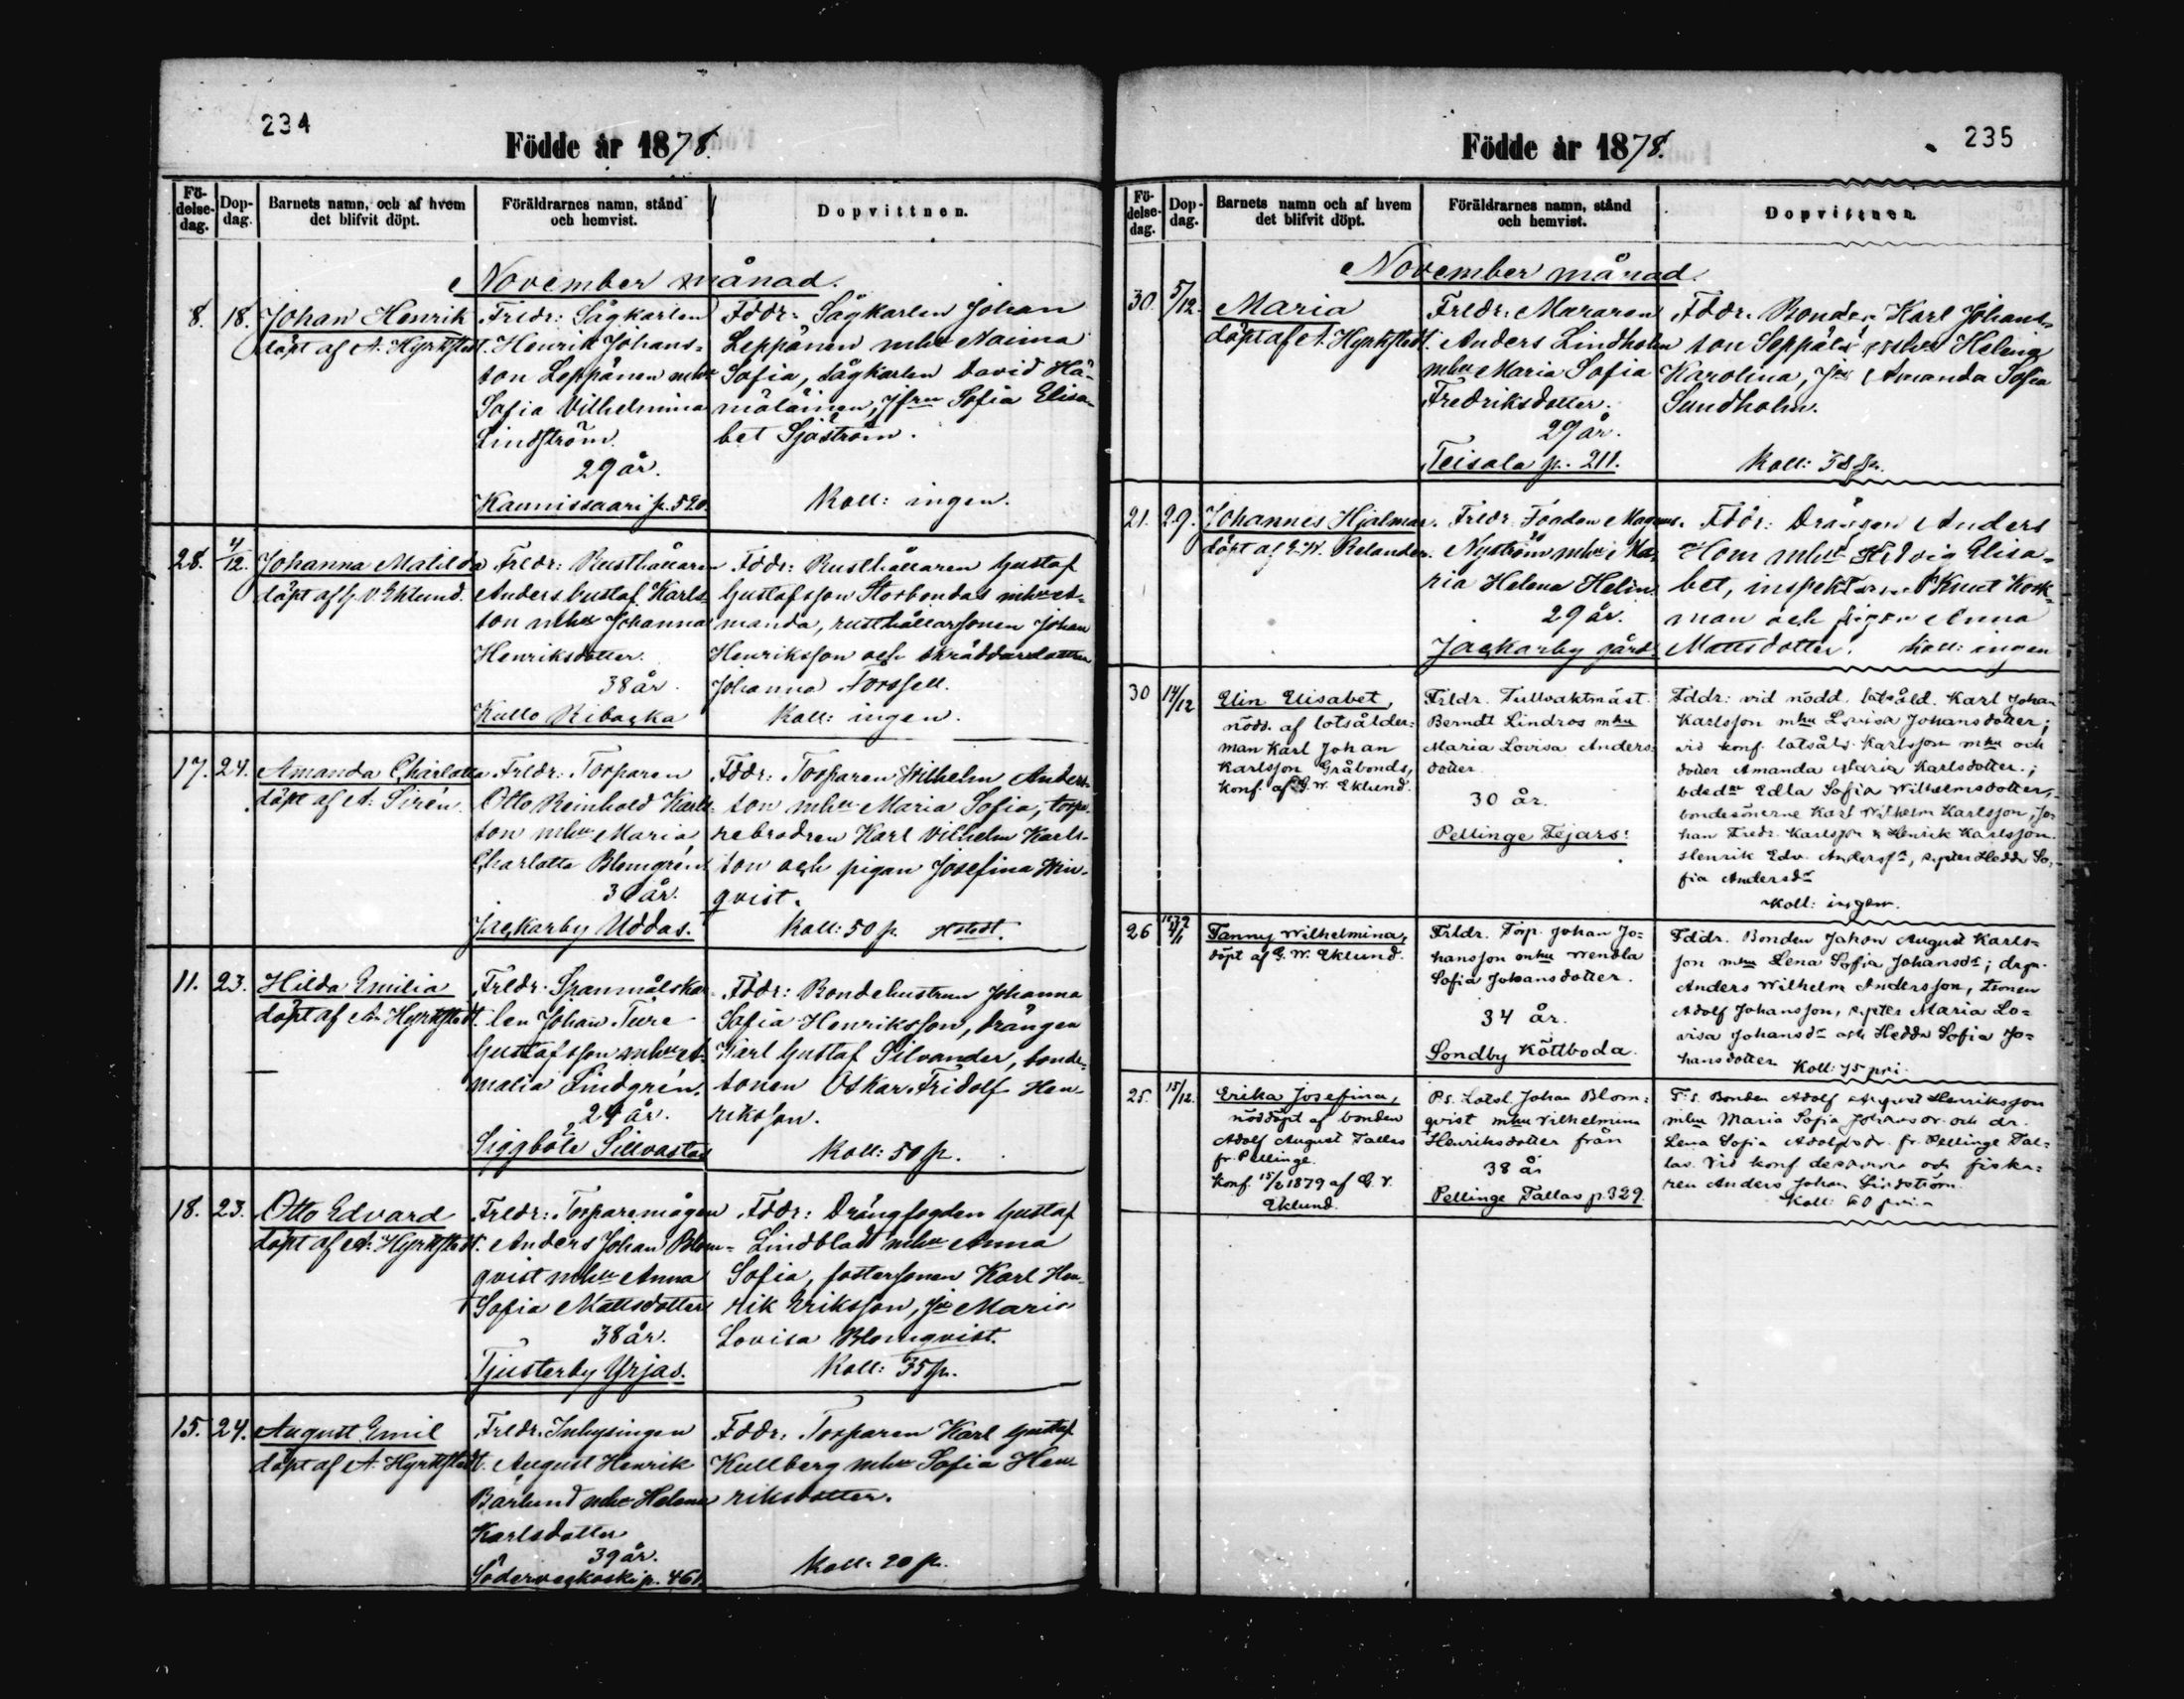 234
Födde år 1878.
Fö-
delse-
dag.
Dop-
dag.
Barnets namn, och af hvem
det blifvit döpt.
Föräldrarnes namn, stånd
och hemvist.
Dopvittnen.
November månad.
8. 18. Johan Henrik
döpt af A. Hyrkstedt.
Frldr: Sågkarlen
Henrik Johans-
son Leppänen mhu
Sofia Vilhelmina
Lindström.
29 år.
Kaunissaari p. 520.
Fddr: Sågkarlen Johan
Leppänen mhu Naima
Sofia, sågkarlen David Hä-
mäläinen, jfrn Sofia Elisa-
bet Sjöström.
Koll: ingen.
28. 4/12. Johanna Matilda
döpt af G. V. Eklund.
Frldr: Rusthållaren
Anders Gustaf Karls-
son mhu Johanna
Henriksdotter.
38 år.
Kullo Ribacka
Fddr: Rusthållaren Gustaf
Gustafsson Storbondas mhu A-
manda, rusthållarsonen Johan
Henriksson och skräddardottren
Johanna Forssell.
Koll: ingen.
17. 24. Amanda Charlotta
döpt af A. Sirén.
Frldr: Torparen
Otto Reinhold Karls-
son mhu Maria
Charlotta Blomgrén
30 år.
Jackarby Uddas.
Fddr: Torparen Wilhelm Anders-
son mhu Maria Sofia, torpa-
rebrodren Karl Vilhelm Karls-
son och pigan Josefina Win-
qvist.
Koll: 50 p.
11. 23. Hilda Emilia
döpt af A. Hyrkstedt.
Frldr: Spanmålskar-
len Johan Ture
Gustafsson mhu A-
malia Lindgrén.
24 år.
Siggböle Sillvastas
Fddr: Bondehustrun Johanna
Sofia Henriksson, drängen
Karl Gustaf Silvander, bonde-
sonen Oskar Fridolf Hen-
riksson.
Koll: 50 p.
18. 23. Otto Edvard
döpt af A. Hyrkstedt.
Frldr: Torparemågen
Anders Johan Blom-
qvist mhu Anna
Sofia Mattsdotter
38 år.
Tjusterby Yrjas.
Fddr: Drängfogden Gustaf
Lindbladt mhu Anna
Sofia, fostersonen Karl Hen-
rik Eriksson, jfr Maria
Lovisa Blomqvist.
Koll: 35 p.
15. 24. August Emil
döpt af A. Hyrkstedt.
Frldr: Inhysingen
August Henrik
Bärlund mhu Helena
Karlsdotter
39 år.
Söderveckoski p. 461.
Fddr: Torparen Karl Gustaf
Kullberg mhu Sofia Hen-
riksdotter.
Koll: 20 p.
235
Födde år 1878.
Fö-
delse-
dag.
Dop-
dag.
Barnets namn och af hvem
det blifvit döpt.
Föräldrarnes namn, stånd
och hemvist.
Dopvittnen.
November månad.
30. 5/12. Maria
döpt af A. Hyrkstedt.
Frldr: Muraren
Anders Lindholm
mhu Maria Sofia
Fredriksdotter.
29 år.
Teisala p. 211.
Fddr: Bonden Karl Johans-
son Seppälä mhu Helena
Karolina, Jfr Amanda Sofia
Sundholm.
Koll: 58 p.
21. 29. Johannes Hjalmar.
döpt af E. W. Relander.
Frldr: Fogden Magnus
Nyström mhu Ma-
ria Helena Helin.
29 år.
Jackarby gård.
Fddr: Drängen Anders
Hom mhu Hedvig Elisa-
bet, inspektoren Knut Kock-
man och pigan Anna
Mattsdotter. Koll: ingen
30 14/12 Elin Elisabet,
nödd. af lotsålder-
man Karl Johan
Karlsson Gråbonds,
konf. af G. W. Eklund.
Frldr. Tullvaktmäst.
Berndt Lindros mhu
Maria Lovisa Anders-
dotter
30 år.
Pellinge Tejars.
Fddr: vid nödd. lotsåld. Karl Johan
Karlsson mhu Lovisa Johansdotter;
vid konf. lotsåld. Karlsson mhu och
dotter Amanda Maria Karlsdotter;
bdedr Edla Sofia Wilhelmsdotter,
bondesönerne Karl Wilhelm Karlsson, Jo-
han Fredr. Karlsson & Henrik Karlsson.
Henrik Edv. Anderss., Hedda So-
fia Andersdr
Koll: ingen.
26 1879 4/1 Fanny Wilhelmina,
döpt af G. W. Eklund.
Frldr. Torp. Johan Jo-
hansson mhu Wendla
Sofia Johansdotter.
34 år.
Sondby Köttboda.
Fddr. Bonden Johan August Karls-
son mhu Lena Sofia Johansdr;
Anders Wilhelm Andersson,
Adolf Johansson, Maria Lo-
visa Johansdr och Hedda Sofia Jo-
hansdotter Koll: 75 pni.
25. 15/12. Erika Josefina,
nöddöpt af bonden
Adolf August Tallas
fr. Pellinge.
Konf. 15/2 1879 af G. V.
Eklund.
Johan Blom-
qvist mhu Vilhelmina
Henriksdotter från
38 år
Pellinge Tallas p. 329.
F:r. Bonden Adolf August Henriksson
mhu Maria Sofia och dr.
Lena Sofia Adolfsdr. fr. Pellinge Tal-
las. Vid konf desamma och fiska-
ren Anders Johan Lindström.
Koll: 60 pni.